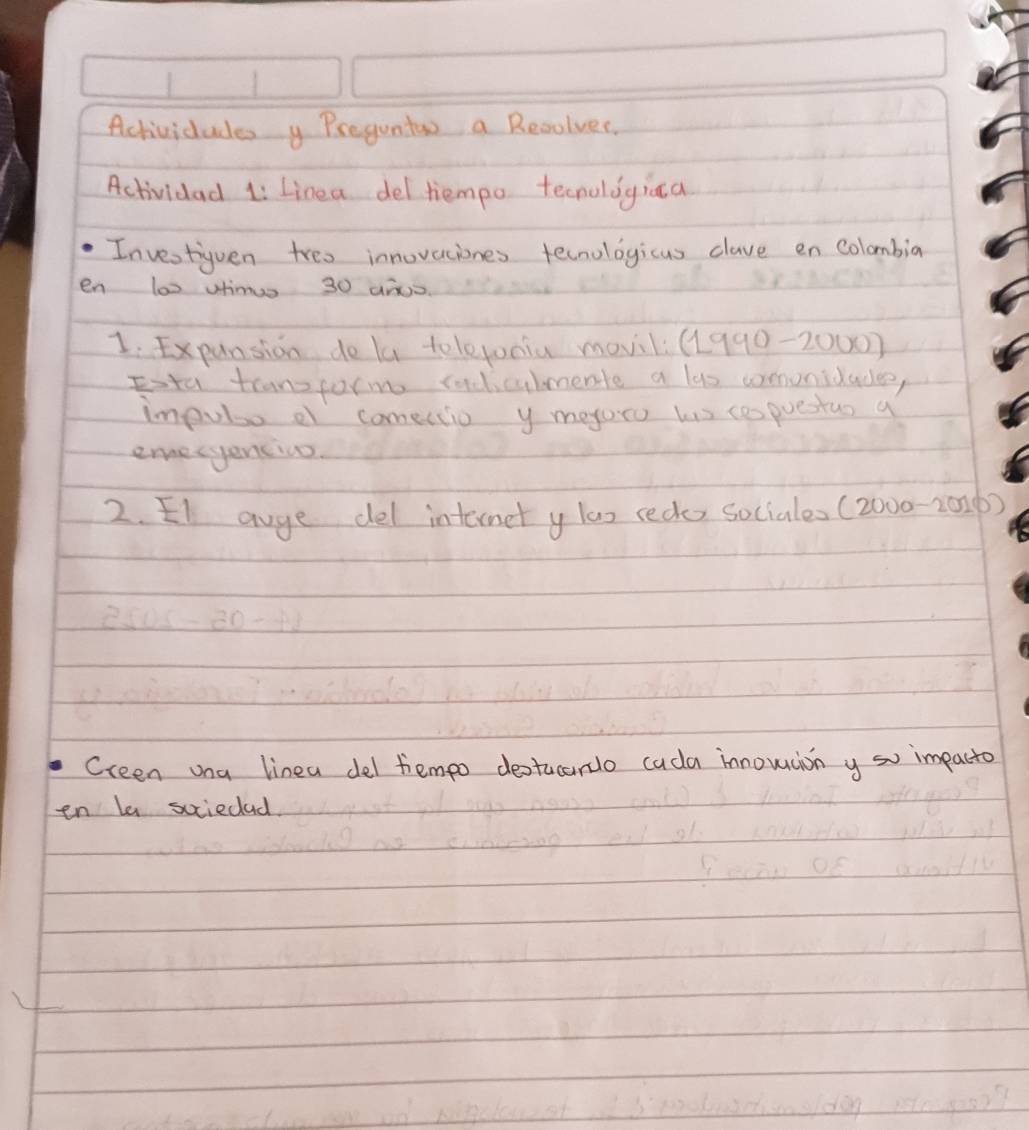 Actividades y Preguntas a Resolver.
Actividad 1: Linea del tiempo tecnológica
• Investiguen tres innovaciones tecnológicas clave en Colombia
en los utimos 30 años.
1. Expansión de la telefonia movil: (1990-2000)
Esta transformo radicalmente a las comunidades,
impulso el comercio y mejoro las respuestas a
emergencias.
2. El auge del internet y las redes sociales (2000-2010)
• Creen una linea del tiempo destacando cada innovación y su impacto
en la sociedad.